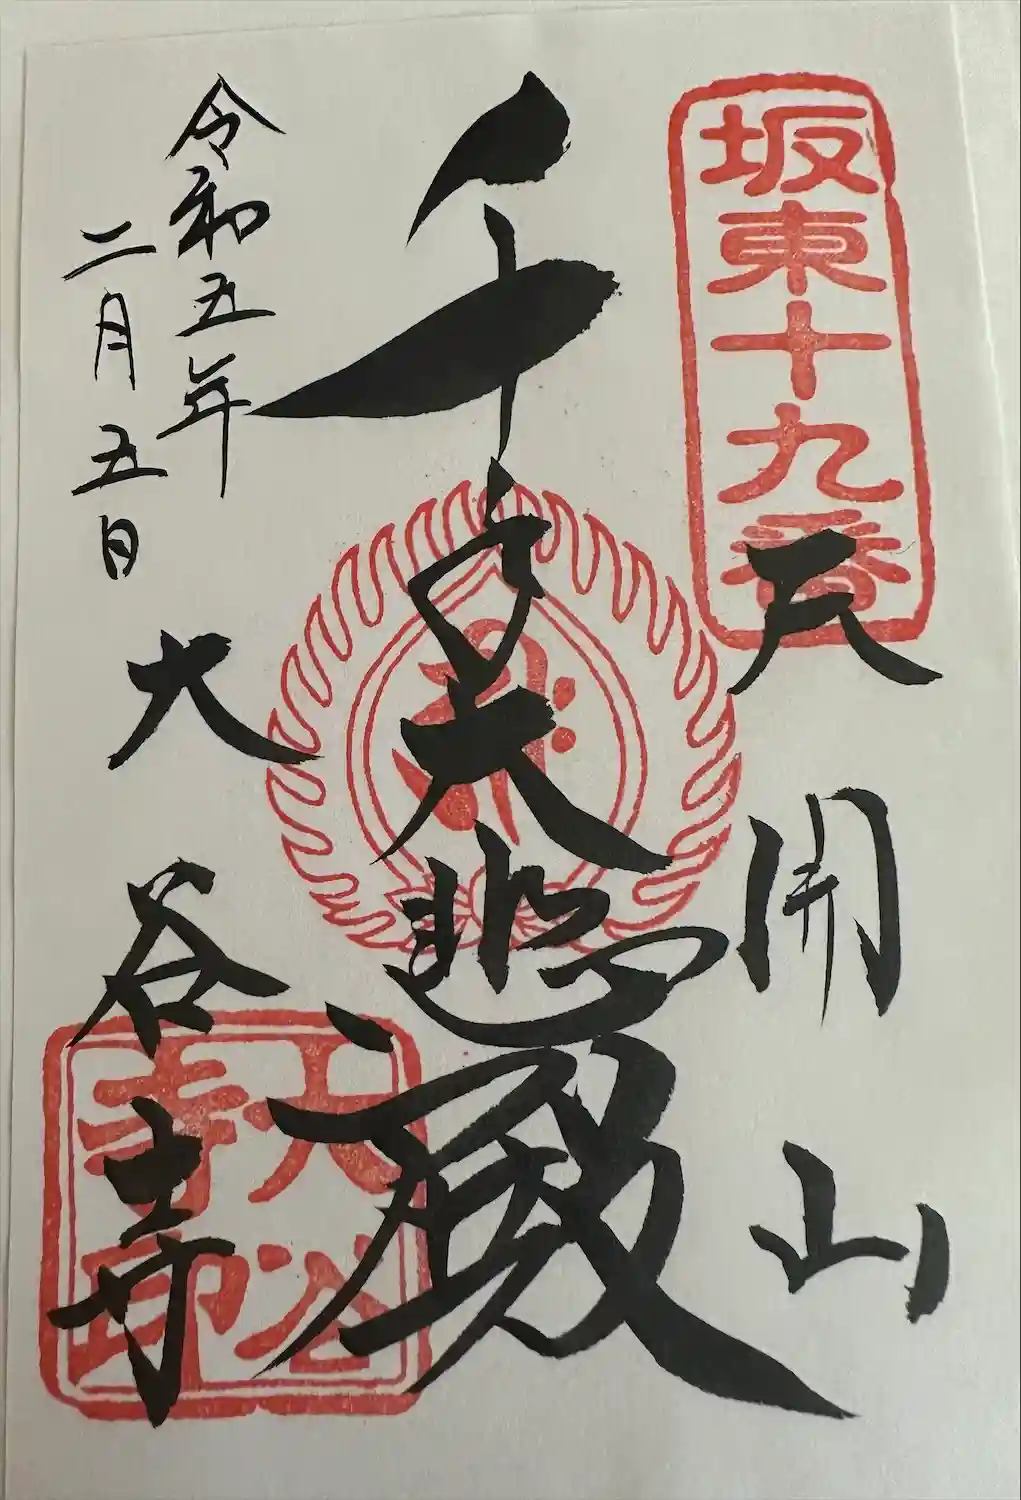 坂東十九番
天開山
千手大悲殿
令和五年
二月五日
大谷寺
大谷
寺印